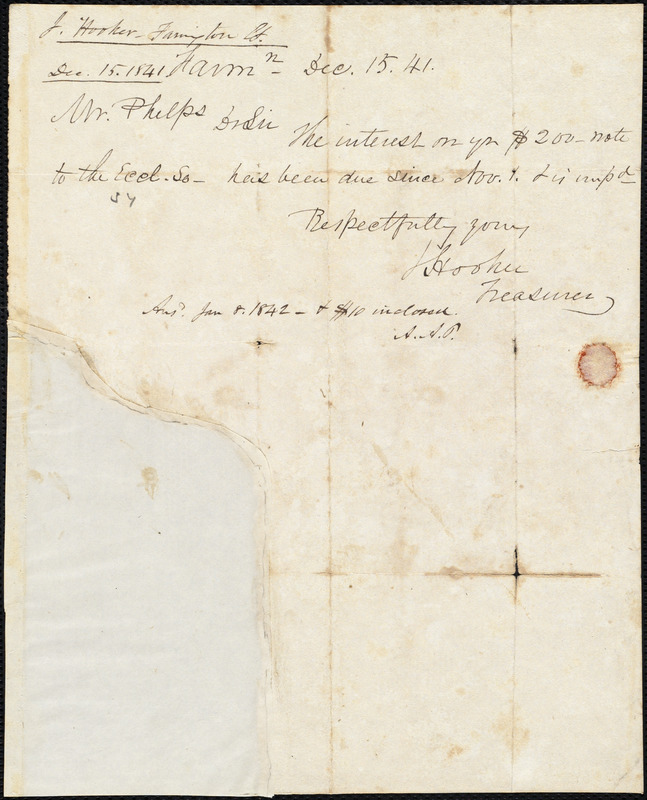 J. Hooker - Farmington Ct.
Dec. 15. 1841. Farmn - Dec. 15. 41.
Mr. Phelps
Dr Sir
The interest on yr $200 - note
to the Eccl. So - has been due since Nov. 1. & is unpd
54
Respectfully yours
J Hooker
Treasurer
Ansd. Jan 8. 1842 - & $10 inclosed.
A. A. P.